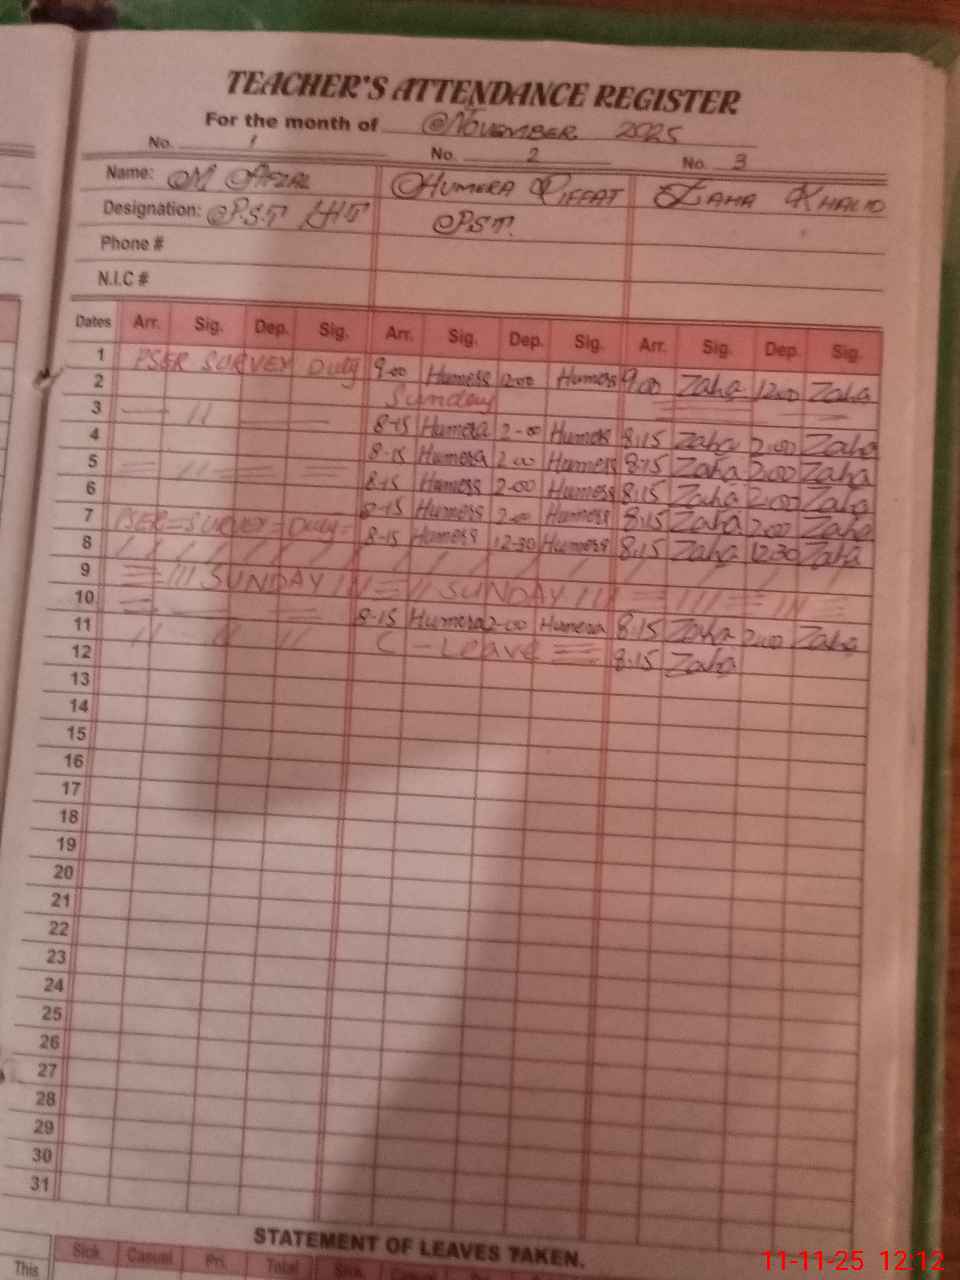 TEACHER'S ATTENDANCE REGISTER
For the month of November 2025
No. 1 No. 2 No. 3
Name: M Afzal Humera Riffat Zaha Khalid
Designation: P.S.T P.S.T.
Phone #
N.I.C #
Dates Arr. Sig. Dep. Sig. Arr. Sig. Dep. Sig. Arr. Sig. Dep. Sig.
1 PSER SURVEY Duty 9-00 Humera 12-00 Humera 9.00 Zaha 12.00 Zaha
2 Sunday
3 — 11 — 8-15 Humera 2-00 Humera 8:15 Zaha 2:00 Zaha
4 8-15 Humera 2-00 Humera 8:15 Zaha 2:00 Zaha
5 = 11 = 8-15 Humera 2-00 Humera 8:15 Zaha 2:00 Zaha
6 8-15 Humera 2-00 Humera 8:15 Zaha 2:00 Zaha
7 PSER = SURVEY = Duty - 8-15 Humera 12-30 Humera 8:15 Zaha 12:30 Zaha
8
9 SUNDAY SUNDAY
10 8-15 Humera 2-00 Humera 8:15 Zaha 2:00 Zaha
11 11 11 11 C - Leave 8:15 Zaha
12
13
14
15
16
17
18
19
20
21
22
23
24
25
26
27
28
29
30
31
STATEMENT OF LEAVES TAKEN.
Sick Casual Pri. Total Sick
This
11-11-25 12:12